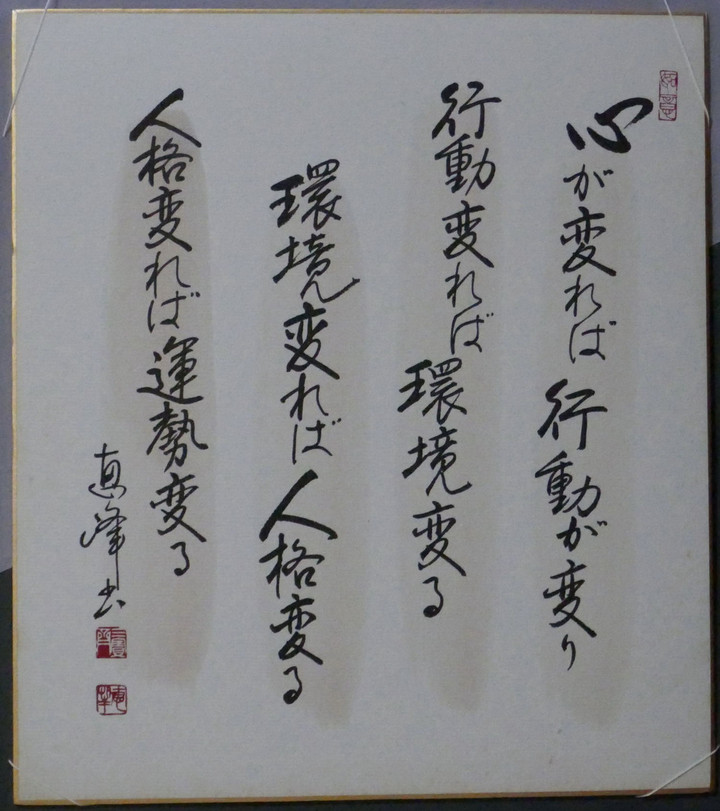 心が変れば行動が変り
行動変れば環境変る
環境変れば人格変る
人格変れば運勢変る
峰書